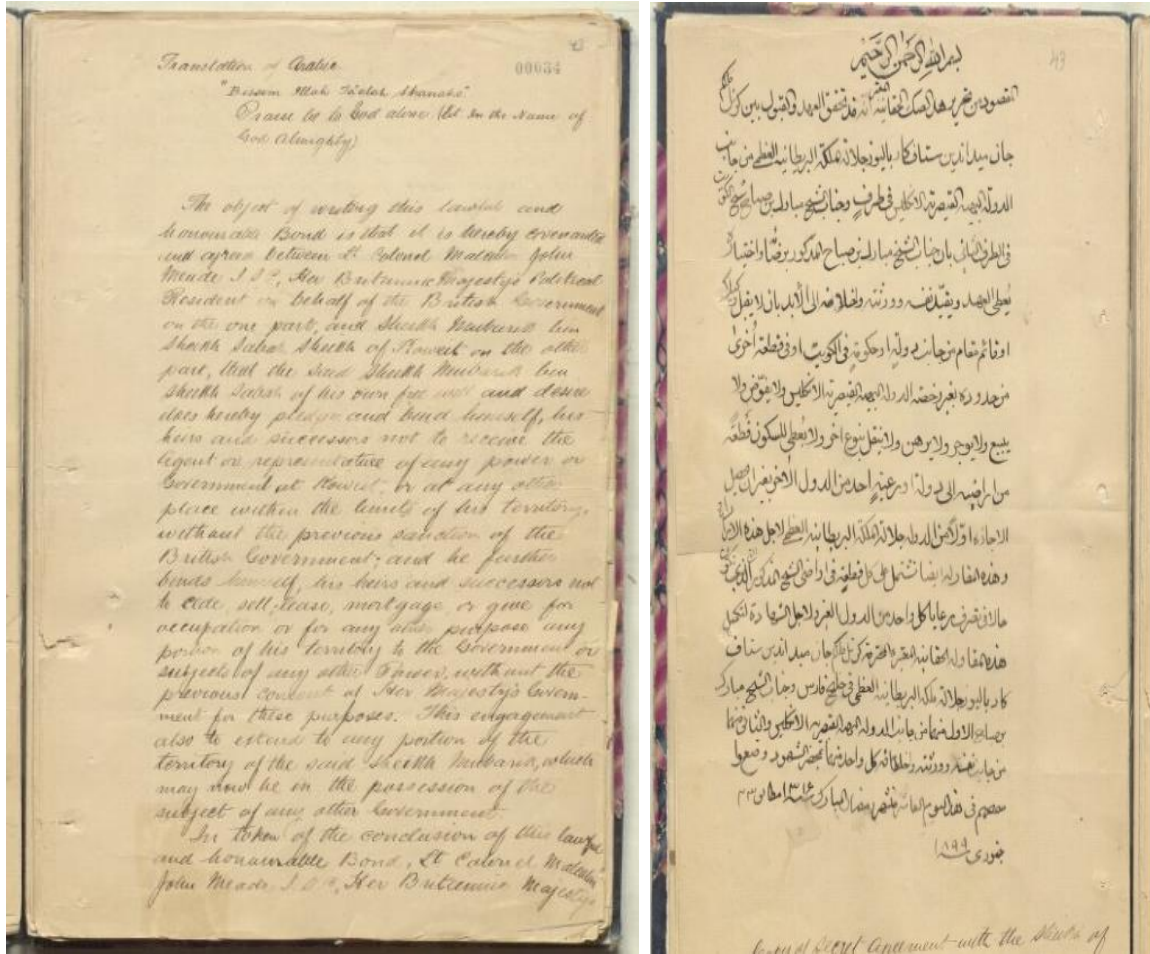 43
00034
Translation of Arabic
"Bissim Illah Ta'alah Shanuho"
Praise be to God alone (lit. In the Name of
God Almighty)
The object of writing this lawful and
honourable Bond is that it is hereby covenanted
and agreed between Lt Colonel Malcolm John
Meade I.S.C., Her Britannic Majesty's Political
Resident on behalf of the British Government
on the one part, and Sheikh Mubarak bin
Sheikh Sabah Sheikh of Koweit on the other
part, that the said Sheikh Mubarak bin
Sheikh Sabah of his own free will and desire
does hereby pledge and bind himself, his
heirs and successors not to receive the
Agent or representative of any power or
Government at Koweit, or at any other
place within the limits of his territory,
without the previous sanction of the
British Government; and he further
binds himself, his heirs and successors not
to cede, sell, lease, mortgage, or give for
occupation or for any other purpose any
portion of his territory to the Government or
subjects of any other Power without the
previous consent of Her Majesty's Govern-
ment for these purposes. This engagement
also to extend to any portion of the
territory of the said Sheikh Mubarak, which
may now be in the possession of the
subject of any other Government.
In token of the conclusion of this lawful
and honourable Bond, Lt Colonel Malcolm
John Meade, I.S.C., Her Britannic Majesty's
43
بسم الله الرحمن الرحيم
المقصود من تحرير هذا الصك قد تحقق العهد والقبول بين كرنل
جان ميد اندين ستاف كار باليوز جلالة ملكة البريطانية العظمى من جانب
الدولة البهية القيصرية الانكليس في طرف وجناب الشيخ مبارك بن صباح شيخ الكويت
في الطرف الثاني بان جناب الشيخ مبارك بن صباح المذكور برضاء واختياره
يعطي العهد ويقيد نفسه وورثته واخلافه الى الأبد بان لا يقبل وكيل
او قائم مقام من جانب دولة او حكومة في الكويت او في قطعة أخرى
من حدوده بغير رخصة الدولة البهية القيصرية الانكليس ولا يفوض ولا
يبيع ولا يوجر ولا يرهن ولا ينقل بنوع اخر ولا يعطي للسكون قطعة
من اراضيه الى دولة او رعية احد من الدول الأخر بغير ان يحصل
الاجازة اولا من الدولة جلالة الملكة البريطانية العظمى لاجل هذه الامور
وهذه المقاولة ايضا تشتمل على كل قطعة في اراضي الشيخ المذكور
حالا في تصرف رعايا كل واحد من الدول الغير ولاجل الشهادة لتكميل
هذه المقاولة كرنل جان ميد اندين ستاف
كار باليوز جلالة ملكة البريطانية العظمى في خليج فارس وجناب الشيخ مبارك
بن صباح الاول منهما من جانب الدولة البهية القيصرية الانكليس والثاني منهما
من جانب نفسه وورثته واخلافه كل واحد منهما بمحضر الشهود وضعوا
في هذا اليوم شهر رمضان المبارك سنة ١٣١٦ ٢٣
جنوري سنة ١٨٩٩
Secret Agreement with the Sheikh of